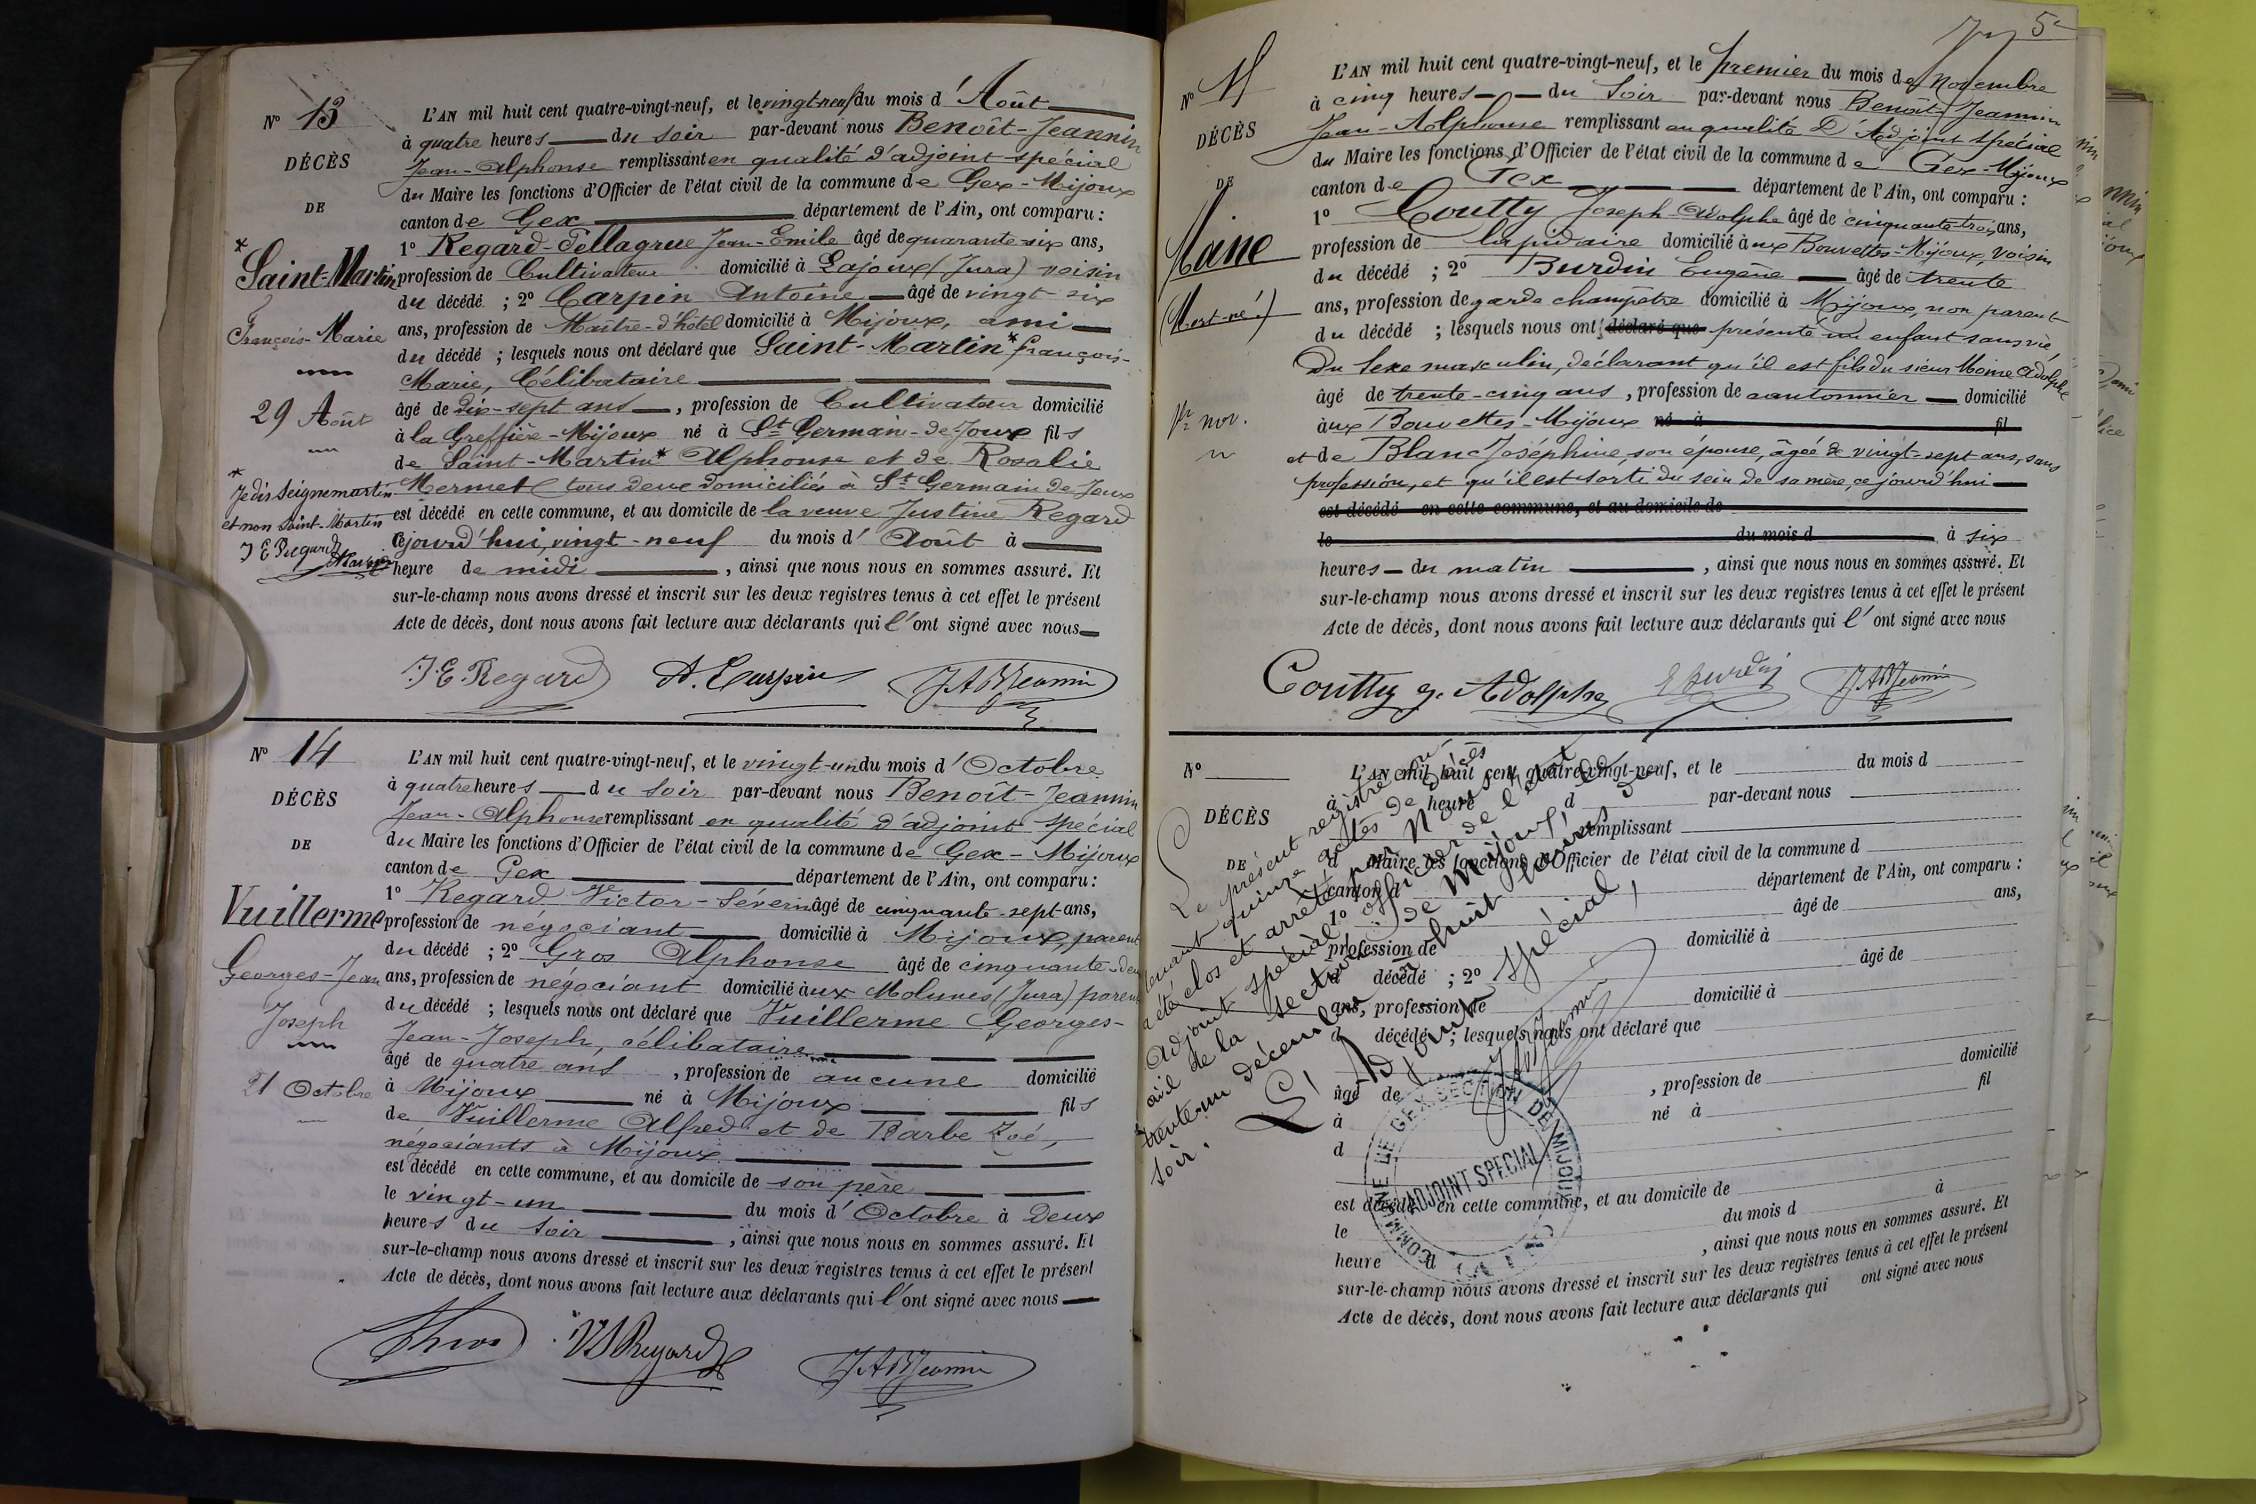 N° 13
DÉCÈS
DE
* Saint-Martin
François-Marie
29 Août
* Je dis Seignemartin
et non Saint-Martin
J E Regard
L'AN mil huit cent quatre-vingt-neuf, et le vingt-neuf du mois d'Août
à quatre heures du soir par-devant nous Benoît-Jeannin
Jean-Alphonse remplissant en qualité d'adjoint spécial
du Maire les fonctions d'Officier de l'état civil de la commune de Gex-Mijoux
canton de Gex département de l'Ain, ont comparu :
1° Regard-Pellagrue Jean-Emile âgé de quarante-six ans,
profession de Cultivateur domicilié à Lajoux (Jura) voisin
du décédé ; 2° Carpin Antoine âgé de vingt-six
ans, profession de Maître-d'hôtel domicilié à Mijoux, ami
du décédé ; lesquels nous ont déclaré que Saint-Martin* François-
Marie, Célibataire
âgé de dix-sept ans, profession de Cultivateur domicilié
à la Greffière-Mijoux né à St Germain-de-Joux fils
de Saint-Martin* Alphonse et de Rosalie
Mermet tous deux domiciliés à St Germain de Joux
est décédé en cette commune, et au domicile de la veuve Justine Regard
Cejourd'hui, vingt-neuf du mois d'Août à
heure de midi, ainsi que nous nous en sommes assuré. Et
sur-le-champ nous avons dressé et inscrit sur les deux registres tenus à cet effet le présent
Acte de décès, dont nous avons fait lecture aux déclarants qui l'ont signé avec nous
J.E. Regard A. Carpin J A B Jeannin
N° 14
DÉCÈS
DE
Vuillerme
Georges-Jean
Joseph
21 Octobre
L'AN mil huit cent quatre-vingt-neuf, et le vingt-un du mois d'Octobre
à quatre heures du soir par-devant nous Benoît-Jeannin
Jean-Alphonse remplissant en qualité d'adjoint spécial
du Maire les fonctions d'Officier de l'état civil de la commune de Gex-Mijoux
canton de Gex département de l'Ain, ont comparu :
1° Regard Victor-Séverin âgé de cinquante-sept ans,
profession de négociant domicilié à Mijoux, parent
du décédé ; 2° Gros Alphonse âgé de cinquante-deux
ans, profession de négociant domicilié aux Molunes (Jura) parent
du décédé ; lesquels nous ont déclaré que Vuillerme Georges-
Jean-Joseph, célibataire
âgé de quatre ans, profession de aucune domicilié
à Mijoux né à Mijoux fils
de Vuillerme Alfred et de Barbe Zoé,
négociants à Mijoux
est décédé en cette commune, et au domicile de son père
le vingt-un du mois d'Octobre à Deux
heures du soir, ainsi que nous nous en sommes assuré. Et
sur-le-champ nous avons dressé et inscrit sur les deux registres tenus à cet effet le présent
Acte de décès, dont nous avons fait lecture aux déclarants qui l'ont signé avec nous
A Gros V S Regard J A B Jeannin
5
N° 15
DÉCÈS
DE
Maine
(Mort-né)
1er nov.
L'AN mil huit cent quatre-vingt-neuf, et le premier du mois de Novembre
à cinq heures du Soir par-devant nous Benoît-Jeannin
Jean-Alphonse remplissant en qualité D'Adjoint Spécial
du Maire les fonctions d'Officier de l'état civil de la commune de Gex-Mijoux
canton de Gex département de l'Ain, ont comparu :
1° Coutty Joseph-Adolphe âgé de cinquante-trois ans,
profession de lapidaire domicilié aux Bouvettes-Mijoux, voisin
du décédé ; 2° Burdin Eugène âgé de trente
ans, profession de garde champêtre domicilié à Mijoux, non parent
du décédé ; lesquels nous ont déclaré que présenté un enfant sans vie
Du Sexe masculin, déclarant qu'il est fils du sieur Moine Adolphe
âgé de trente-cinq ans, profession de cantonnier domicilié
aux Bouvettes-Mijoux né à fil
et de Blanc Joséphine, son épouse, âgée de vingt-sept ans, sans
profession, et qu'il est sorti du sein de sa mère, ce jourd'hui
est décédé en cette commune, et au domicile de
le du mois d à six
heures du matin, ainsi que nous nous en sommes assuré. Et
sur-le-champ nous avons dressé et inscrit sur les deux registres tenus à cet effet le présent
Acte de décès, dont nous avons fait lecture aux déclarants qui l'ont signé avec nous
Coutty J. Adolphe E Burdin J A B Jeannin
N°
DÉCÈS
DE
L'AN mil huit cent quatre-vingt-neuf, et le du mois d
à heure d par-devant nous
remplissant
d Maire les fonctions d'Officier de l'état civil de la commune d
canton d département de l'Ain, ont comparu :
1° âgé de ans,
profession de domicilié à
d décédé ; 2° âgé de
ans, profession de domicilié à
d décédé ; lesquels nous ont déclaré que
âgé de , profession de domicilié
à né à fil
d
est décédé en cette commune, et au domicile de
le du mois d à
heure d , ainsi que nous nous en sommes assuré. Et
sur-le-champ nous avons dressé et inscrit sur les deux registres tenus à cet effet le présent
Acte de décès, dont nous avons fait lecture aux déclarants qui ont signé avec nous
Le présent registre con-
tenant quinze actes de Décès
a été clos et arrêté par Nous
Adjoint spécial officier de l'état
civil de la section de Mijoux, le
trente-un décembre à huit heures du
soir.
L'Adjoint Spécial,
J A B Jeannin
COMMUNE DE GEX SECTION DE MIJOUX
ADJOINT SPECIAL
(AIN)